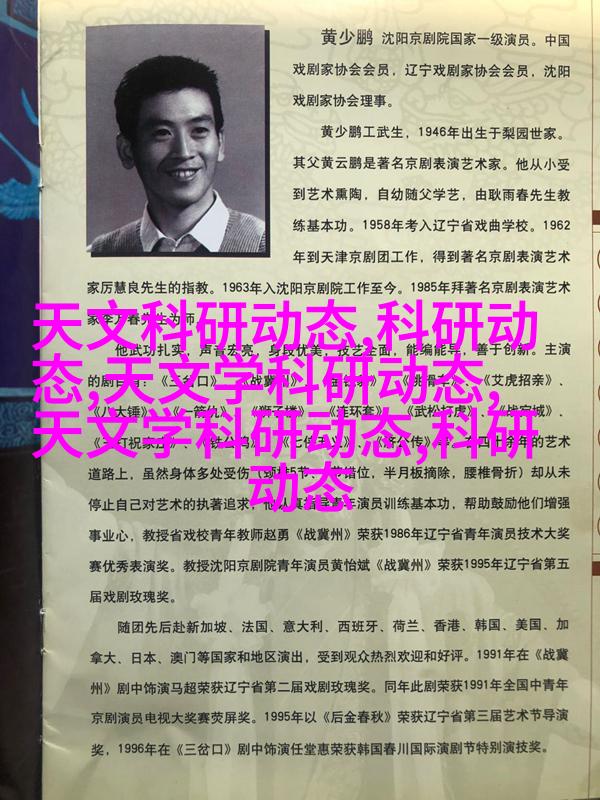 黄少鹏 沈阳京剧院国家一级演员。中国
戏剧家协会会员，辽宁戏剧家协会会员，沈阳
戏剧家协会理事。
黄少鹏工武生，1946年出生于梨园世家。
其父黄云鹏是著名京剧表演艺术家。他从小受
到艺术熏陶，自幼随父学艺，由耿雨春先生教
练基本功。1958年考入辽宁省戏曲学校。1962
年到天津京剧团工作，得到著名京剧表演艺术
家厉慧良先生的指教。1963年入沈阳京剧院工作至今。1985年拜著名京剧表演艺术
家李万春先生为师
天文科研动态,科研动
态,天文学科研动态,
天文学科研动态,科研
动态
他武功扎实，声音宏亮，身段优美，技艺全面，能编能导，善于创新。主演
的剧目有：《三岔口》、《战冀州》、《挑滑车》、《艾虎招亲》、
《八大锤》、《一箭仇》、《狮子楼》、《连环套》、《武松打虎》、《战宛城》、
《三打祝家庄》、《铁公鸡》、《济公传》在四十余年的艺术
道路上，虽然身体多处受伤（颈椎5节、节错位，半月板摘除，腰椎骨折）却从未
停止自己对艺术的执著追求。他认真指导青年演员训练基本功，帮助鼓励他们增强
事业心，教授省戏校青年教师赵勇《战冀州》荣获1986年辽宁省青年演员技术大奖
赛优秀表演奖。教授沈阳京剧院青年演员黄怡斌《战冀州》荣获1995年辽宁省第五
届戏剧玫瑰奖。
随团先后赴新加坡、法国、意大利、西班牙、荷兰、香港、韩国、美国、加
拿大、日本、澳门等国家和地区演出，受到观众热烈欢迎和好评。1991年在《战冀
州》剧中饰演马超荣获辽宁省第二届戏剧玫瑰奖。同年此剧荣获1991年全国中青年
京剧演员电视大奖赛荧屏奖。1995年以《后金春秋》荣获辽宁省第三届艺术节导演
奖，1996年在《三岔口》剧中饰演任堂惠荣获韩国春川国际演剧节特别演技奖。